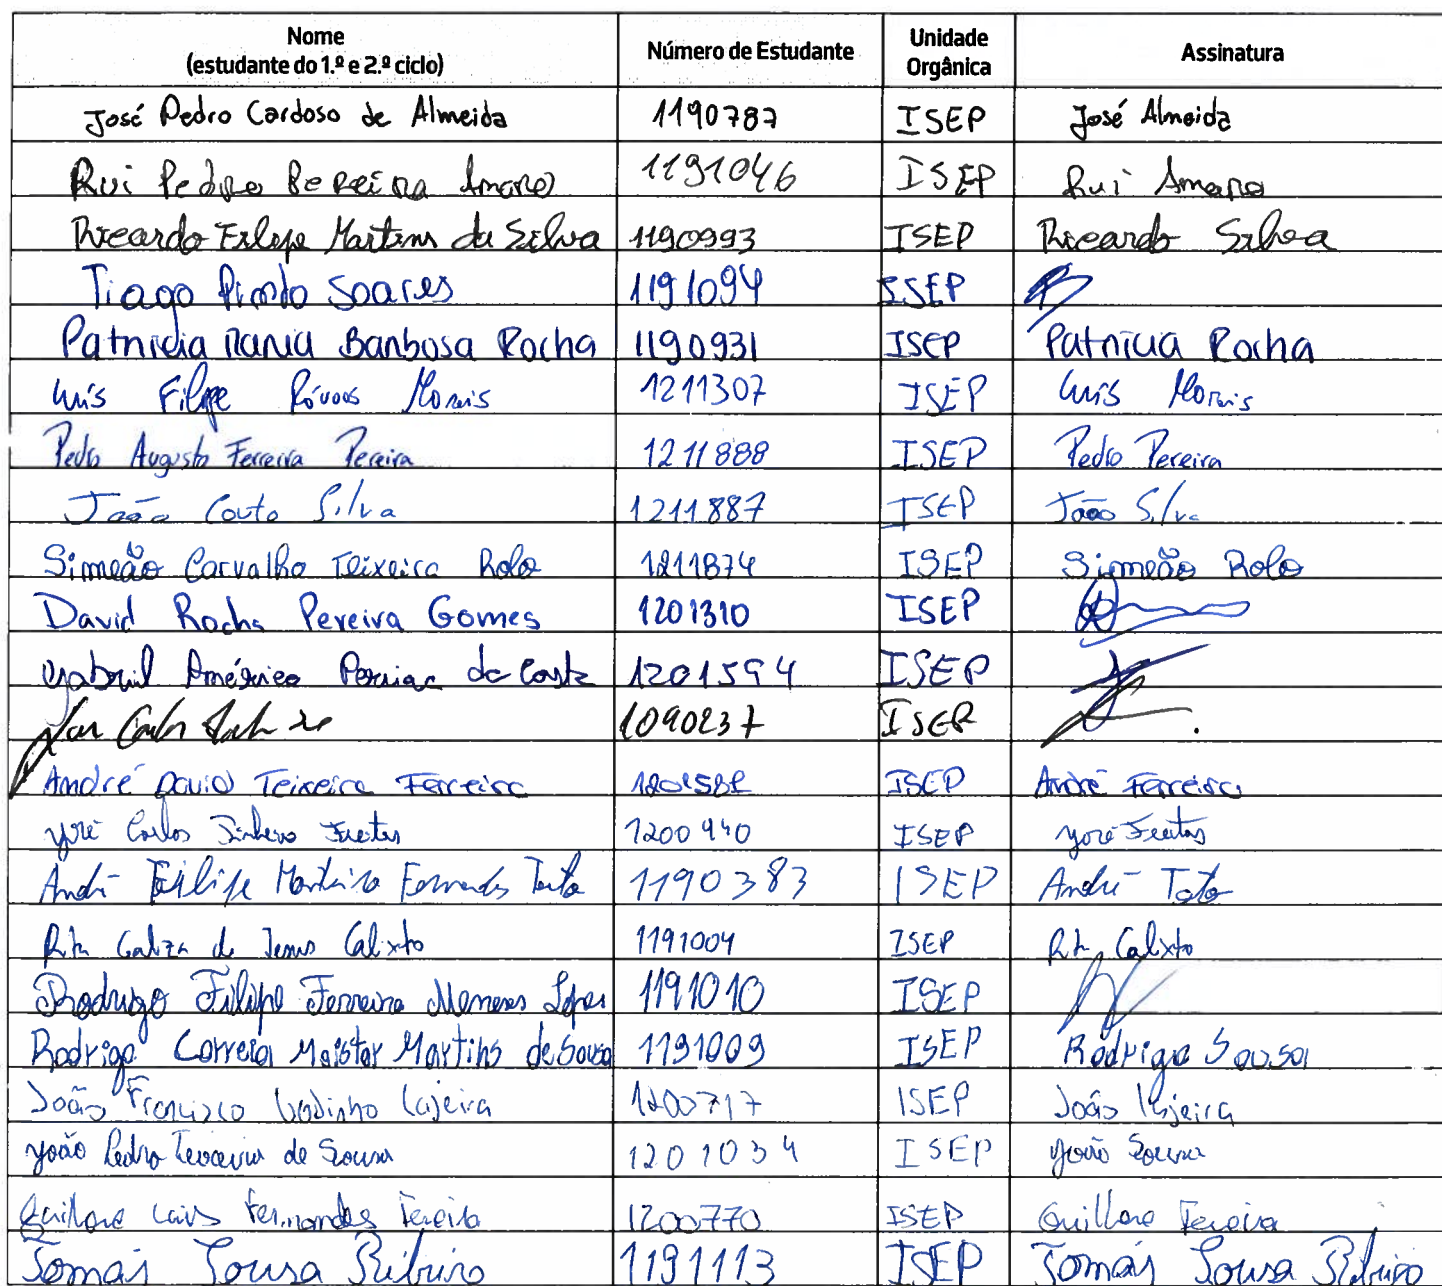 Nome (estudante do 1.º e 2.º ciclo) Número de Estudante Unidade Orgânica Assinatura
José Pedro Cardoso de Almeida 1190787 ISEP José Almeida
Rui Pedro Pereira Amaro 1191046 ISEP Rui Amaro
Ricardo Filipe Martins da Silva 1190993 ISEP Ricardo Silva
Tiago Pinto Soares 1191094 ISEP
Patricia Maria Barbosa Rocha 1190931 ISEP Patricia Rocha
Luís Filipe Morais 1211307 ISEP Luís Morais
Pedro Augusto Ferreira Pereira 1211888 ISEP Pedro Pereira
João Couto Silva 1211887 ISEP João Silva
Simeão Carvalho Teixeira Rolo 1211874 ISEP Simeão Rolo
David Rocha Pereira Gomes 1201310 ISEP
Gabriel Américo da Costa 1201594 ISEP
1090237 ISEP
André David Teixeira Ferreira ISEP André Ferreira
José Carlos Freitas 1200940 ISEP José Freitas
André Filipe Fernandes Tato 1190383 ISEP André Tato
Rita de Jesus Calixto 1191004 ISEP Rita Calixto
Rodrigo Filipe Ferreira Meneses Lopes 1191010 ISEP
Rodrigo Correia Martins de Sousa 1191009 ISEP Rodrigo Sousa
João Francisco 1200717 ISEP João
João Pedro de Sousa 1201034 ISEP João Sousa
Luís Fernandes 1200770 ISEP
Tomás Sousa Ribeiro 1191113 ISEP Tomás Sousa Ribeiro